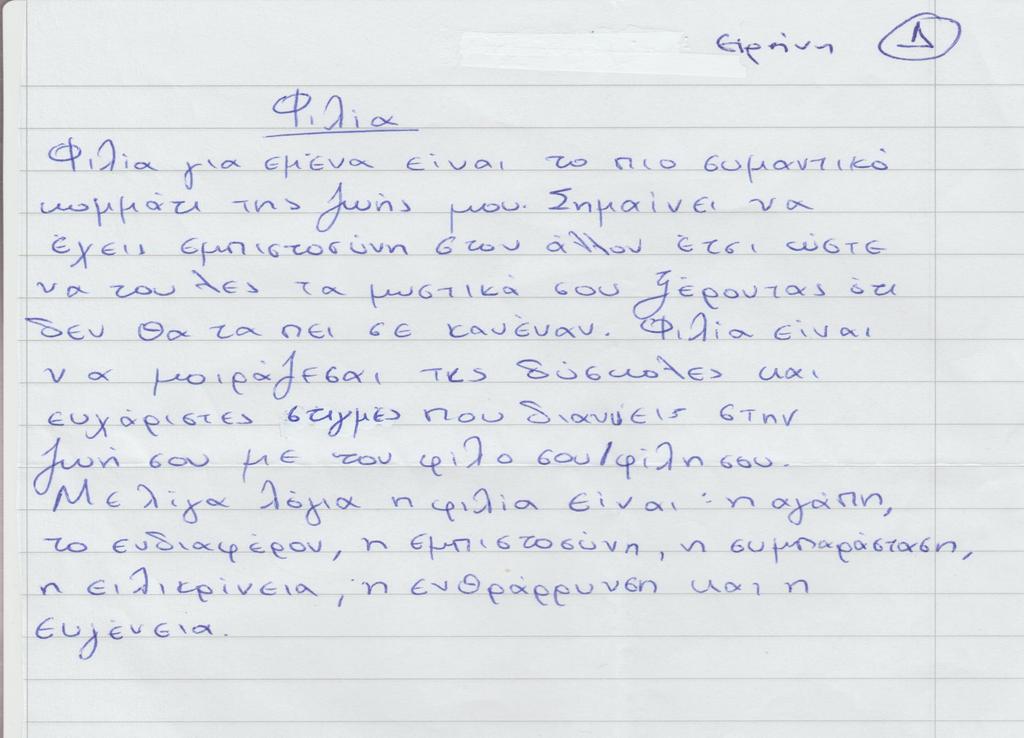 Ειρήνη Δ
Φιλία
Φιλία για εμένα είναι το πιο συμαντικό
κομμάτι της ζωής μου. Σημαίνει να
έχεις εμπιστοσύνη στον άλλον έτσι ώστε
να του λες τα μυστικά σου ξέροντας ότι
δεν θα τα πει σε κανέναν. Φιλία είναι
να μοιράζεσαι τις δύσκολες και
ευχάριστες στιγμές που διανύεις στην
ζωή σου με τον φιλο σου/φίλη σου.
Με λίγα λόγια η φιλία είναι: η αγάπη,
το ενδιαφέρον, η εμπιστοσύνη, η συμπαράσταση,
η ειλικρίνεια, η ενθράρρυνση και η
ευγένεια.